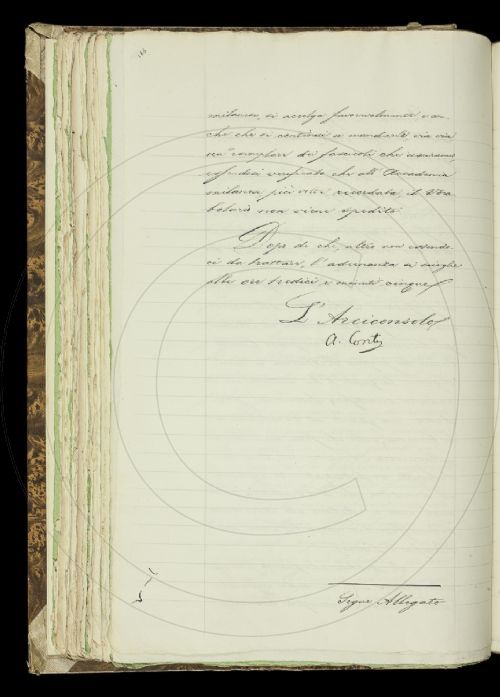 milanese, si accolga favorevolmente e an-
che che si continui a mandarle via via
un esemplare dei fascicoli che usciranno
essendosi verificato che all'Accademia
milanese più volte ricordata, il Voca
bolario non viene spedito.
Dopo di che, altro non essendo-
ci da trattare, l'adunanza si scioglie
alle ore tredici e minuti cinque.
L'Arciconsolo
A. Conti
Segue Allegato